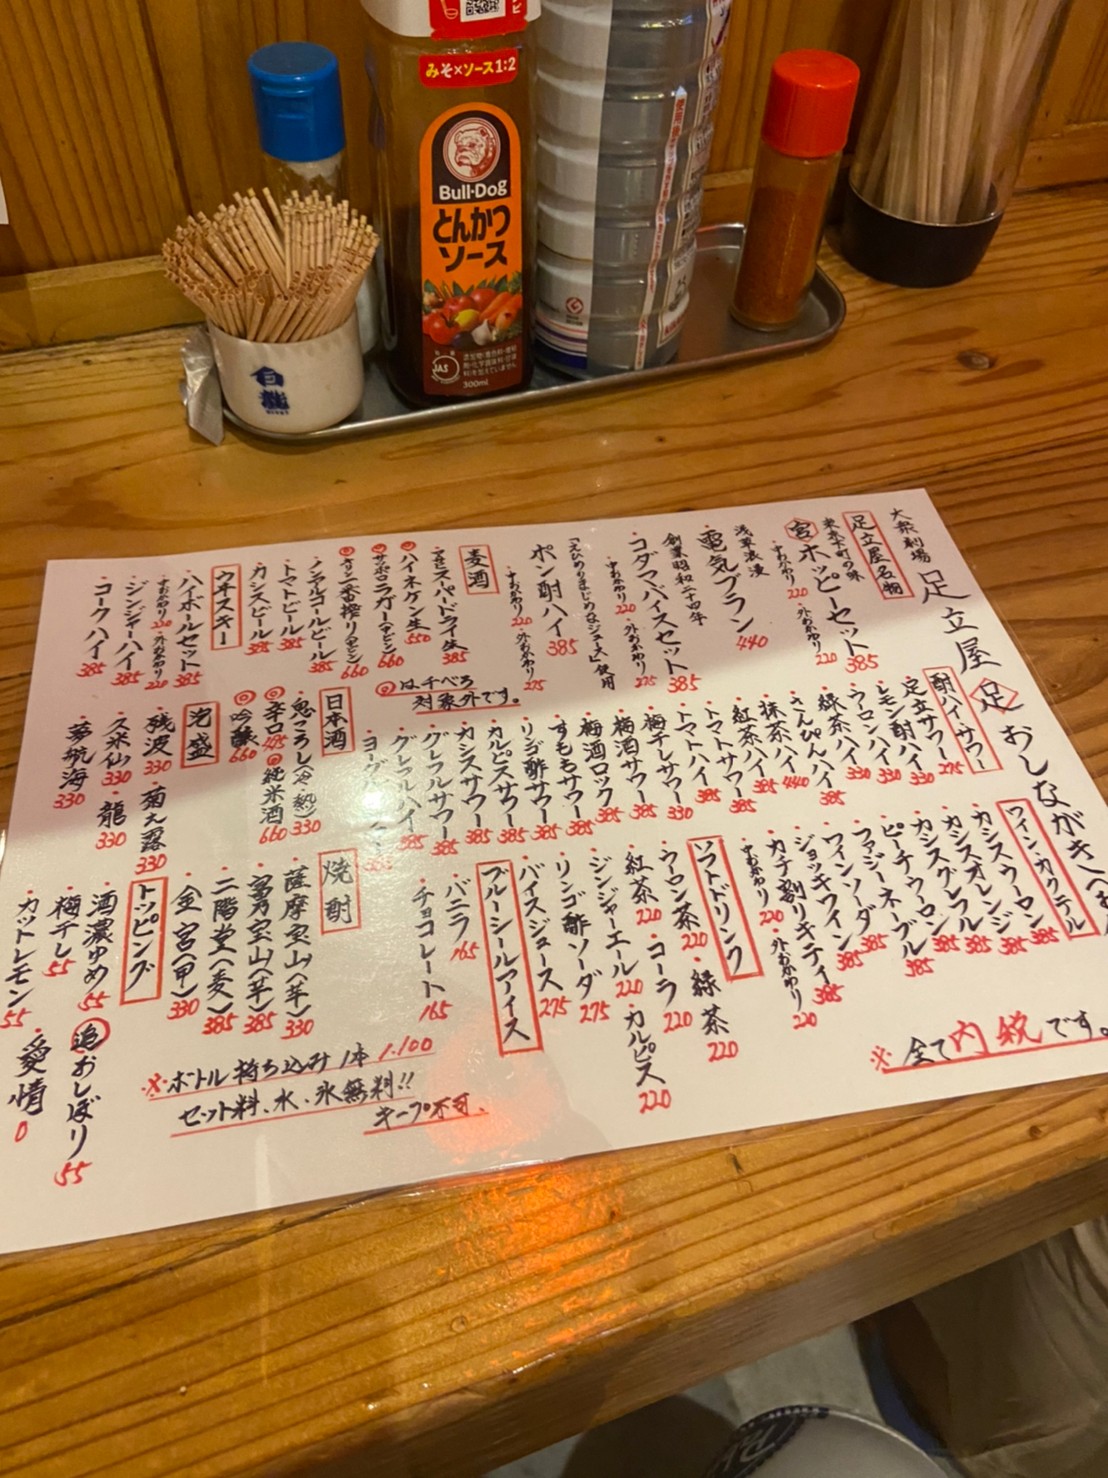 みそ×ソース1:2
Bull-Dog
とんかつ
ソース
JAS
300ml
白龍
大衆劇場
足立屋 足 おしながき
足立屋名物
東京下町の味
宮 ホッピーセット 385
・中おかわり 220 ・外おかわり 220
浅草浪漫
・電気ブラン 440
創業昭和二十四年
・コダマバイスセット 385
・中おかわり 220 ・外おかわり 275
「えひめのまじめなジュース」使用
ポン酎ハイ 385
・中おかわり 220 ・外おかわり 275
麦酒
・アサヒスーパードライ生 385
・ハイネケン生 550
・サッポロラガー(中ビン) 660
・キリン一番搾り(中ビン) 660
・ノンアルコールビール 385
・トマトビール 385
・カシスビール 385
ウヰスキー
・ハイボールセット 385
・中おかわり 220 ・外おかわり 220
・ジンジャーハイ 385
・コークハイ 385
は、千べろ
対象外です。
酎ハイ・サワー
・足立サワー 275
・レモン酎ハイ 330
・ウーロンハイ 330
・緑茶ハイ 330
・さんぴんハイ 385
・抹茶ハイ 440
・紅茶ハイ 385
・トマトサワー 385
・トマトハイ 385
・梅干しサワー 330
・梅酒サワー 385
・梅酒ロック 385
・すももサワー 385
・リンゴ酢サワー 385
・カルピスサワー 385
・カシスサワー 385
・グレフルサワー 385
・グレフルハイ 385
日本酒
・鬼ころし(冷・熱) 330
・辛口 495 純米酒 660
・吟醸 660
泡盛
・残波 330 ・菊之露 330
・久米仙 330 ・龍 330
・夢航海 330
ワイン・カクテル
・カシスウーロン 385
・カシスオレンジ 385
・カシスグレフル 385
・ピーチウーロン 385
・ファジーネーブル 385
・ワインソーダ 385
・ジョッキワイン 385
・カチ割りキティ 385
・中おかわり 220 ・外おかわり 220
ソフトドリンク
・ウーロン茶 220 ・緑茶 220
・紅茶 220 ・コーラ 220
・ジンジャーエール 220 ・カルピス 220
・リンゴ酢ソーダ 275
・バイスジュース 275
ブルーシールアイス
・バニラ 165
・チョコレート 165
焼酎
・薩摩宝山(芋) 330
・富乃宝山(芋) 385
・二階堂(麦) 385
・金宮(甲) 330
トッピング
・酒濃ゆめ 55
・梅干し 55
・カットレモン 55
追おしぼり 55
・愛情 0
※ボトル持ち込み1本 1.100
セット料、水、氷無料!!
キープ不可、
※全て内税です。